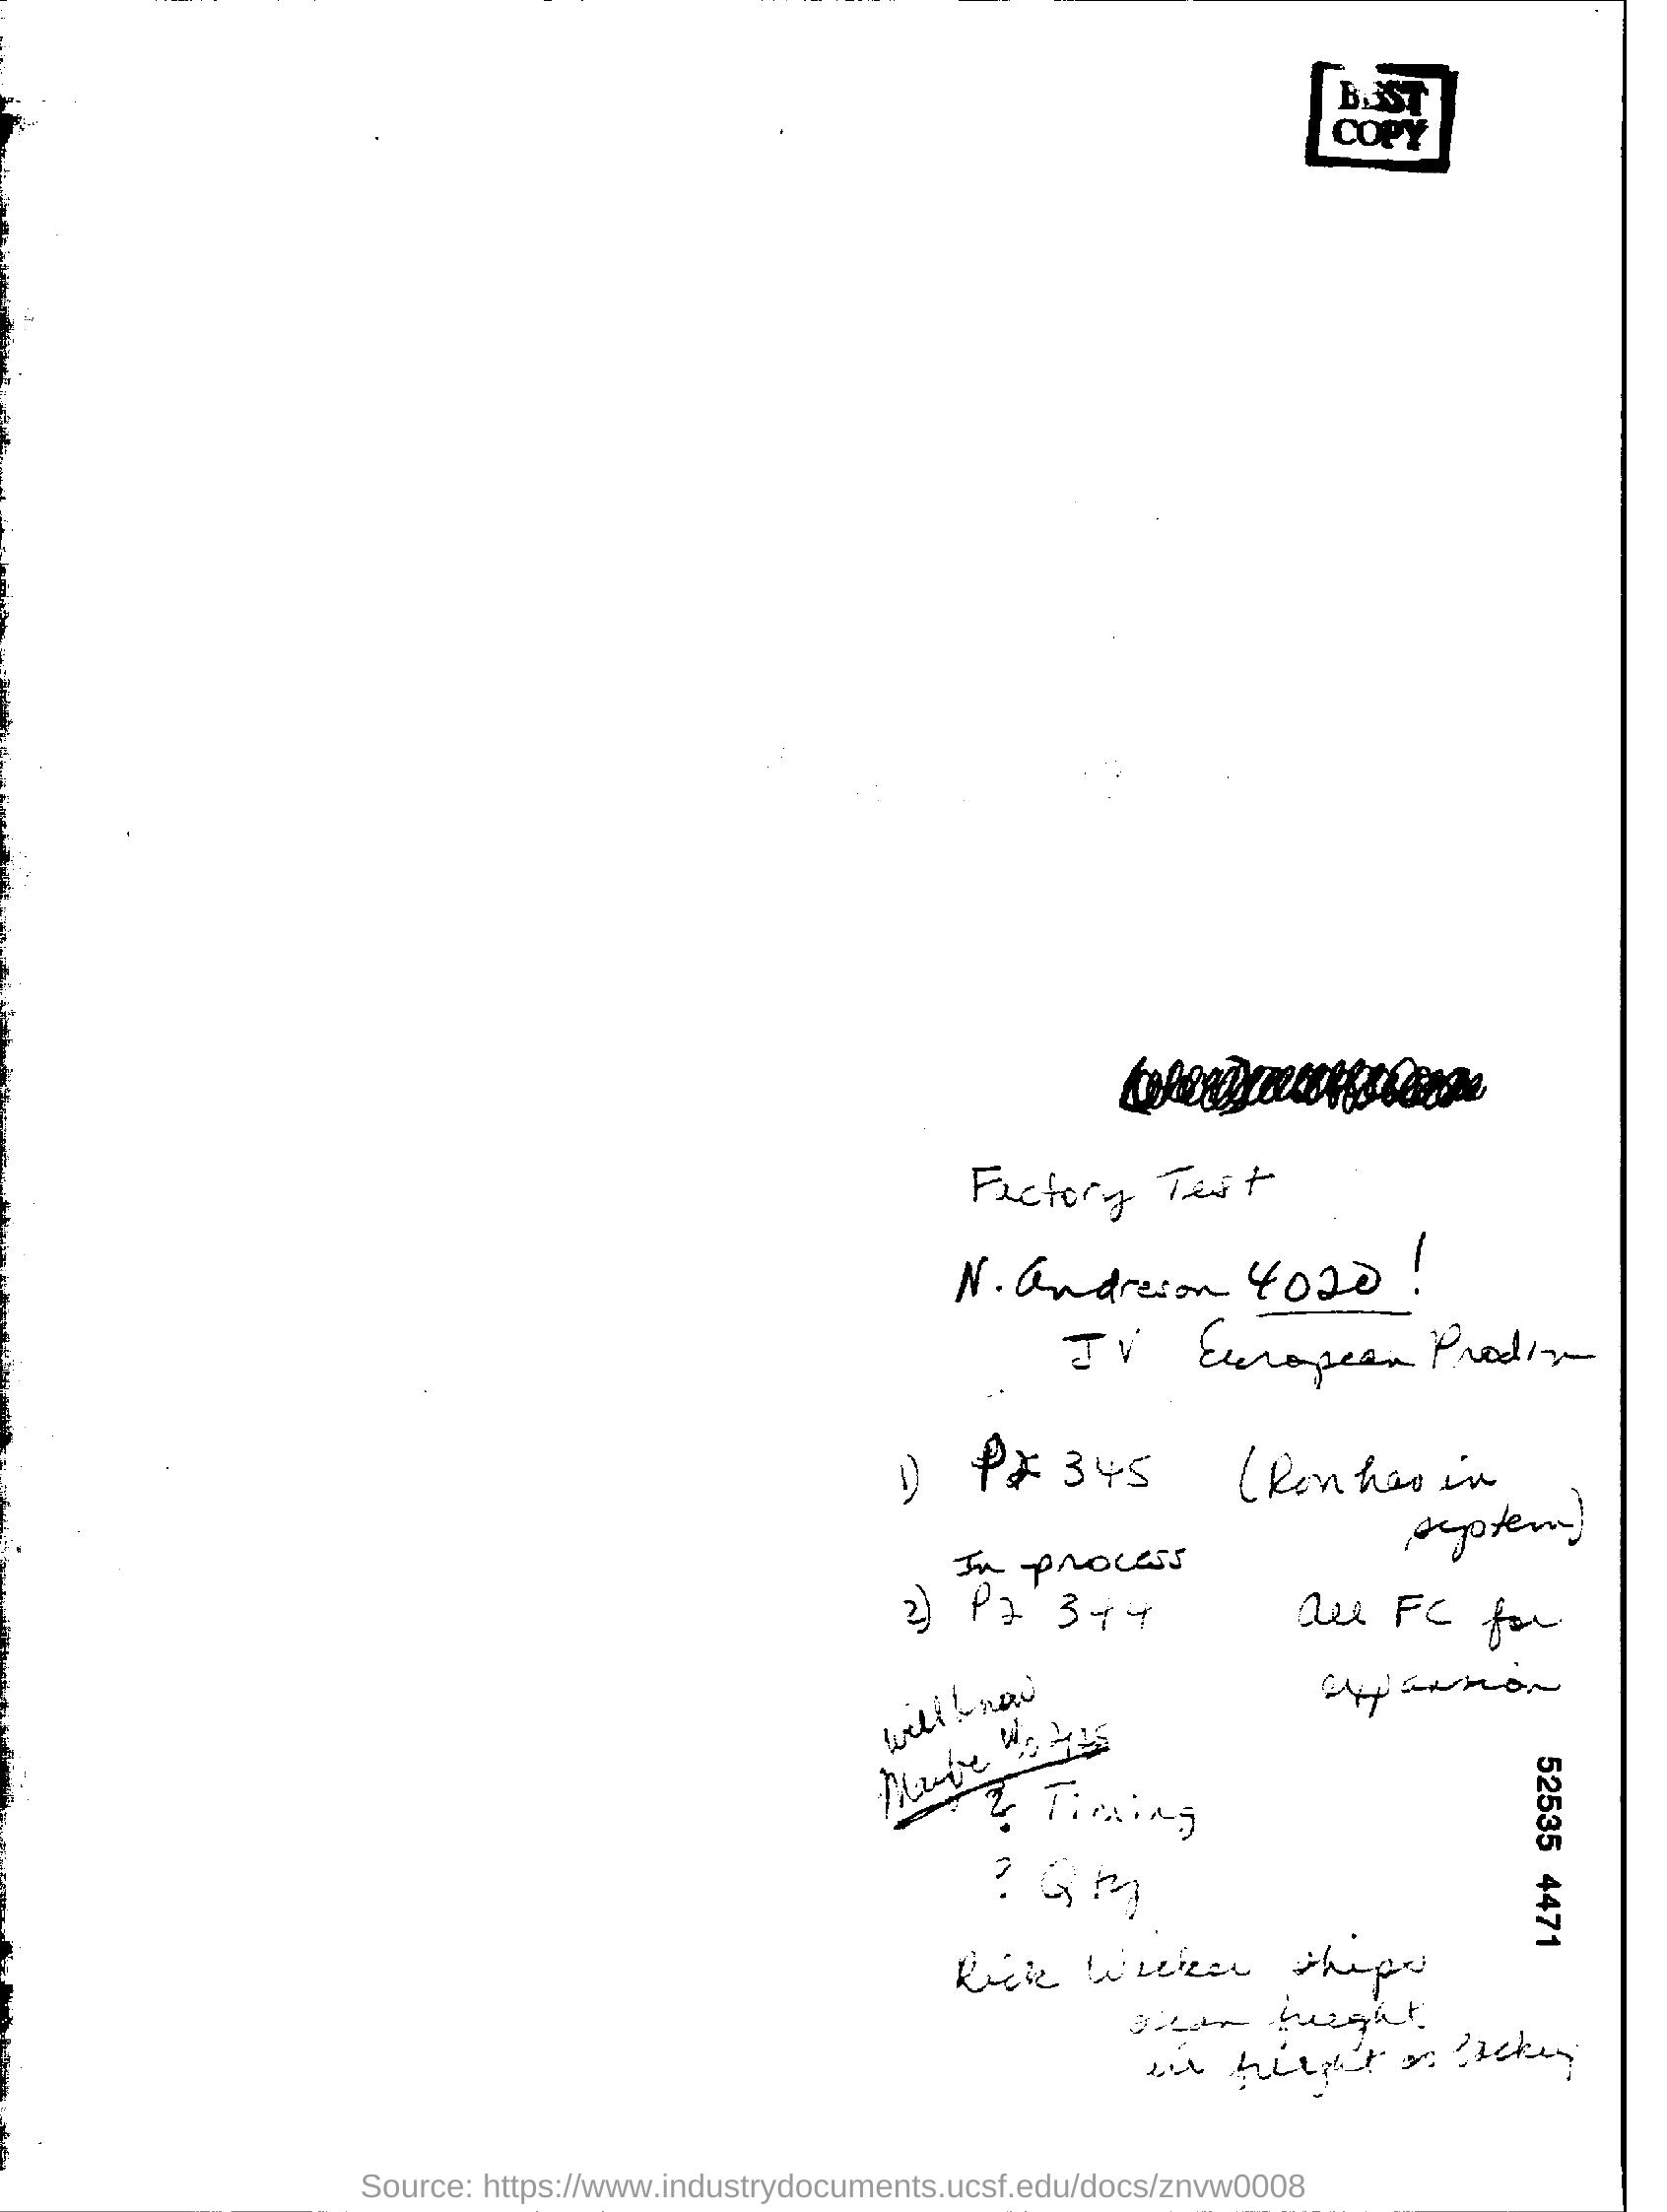 BEST
COPY
Factory Test
N. Andreson 4020!
JV European
1) PZ 345 (Ron has in
system)
In process
2) PZ 344 All FC for
expansion
will know
Maybe
? Timing
? Qty
Rick Wicker ships
ocean freight
air freight as backup
52535 4471
Source: https://www.industrydocuments.ucsf.edu/docs/znvw0008